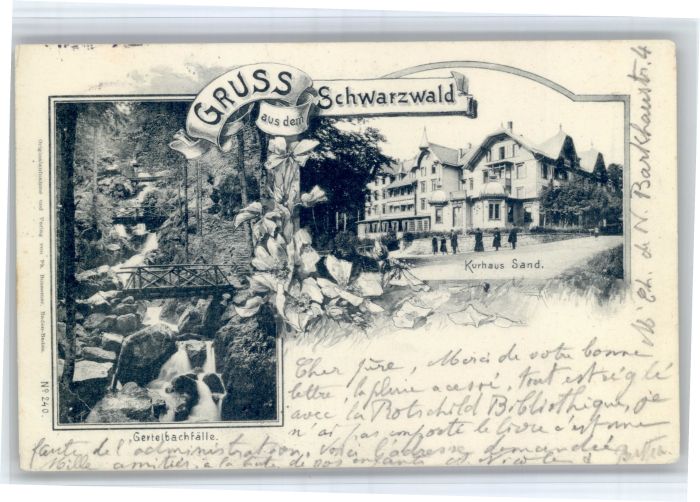 GRUSS
aus dem
Schwarzwald
Kurhaus Sand.
Gertelbachfälle.
Originalaufnahme und Verlag von Ph. Bussemer, Baden-Baden.
No 240.
Cher frère, Merci de votre bonne
lettre, la pluie a cessé, tout est réglé
avec la Rotschild Bibliothèque, je
n'ai pas emporté le livre c'est une
faute de l'administration, voici l'adresse demandée
Mille amitiés à la
de N. Barkhausstr. 4